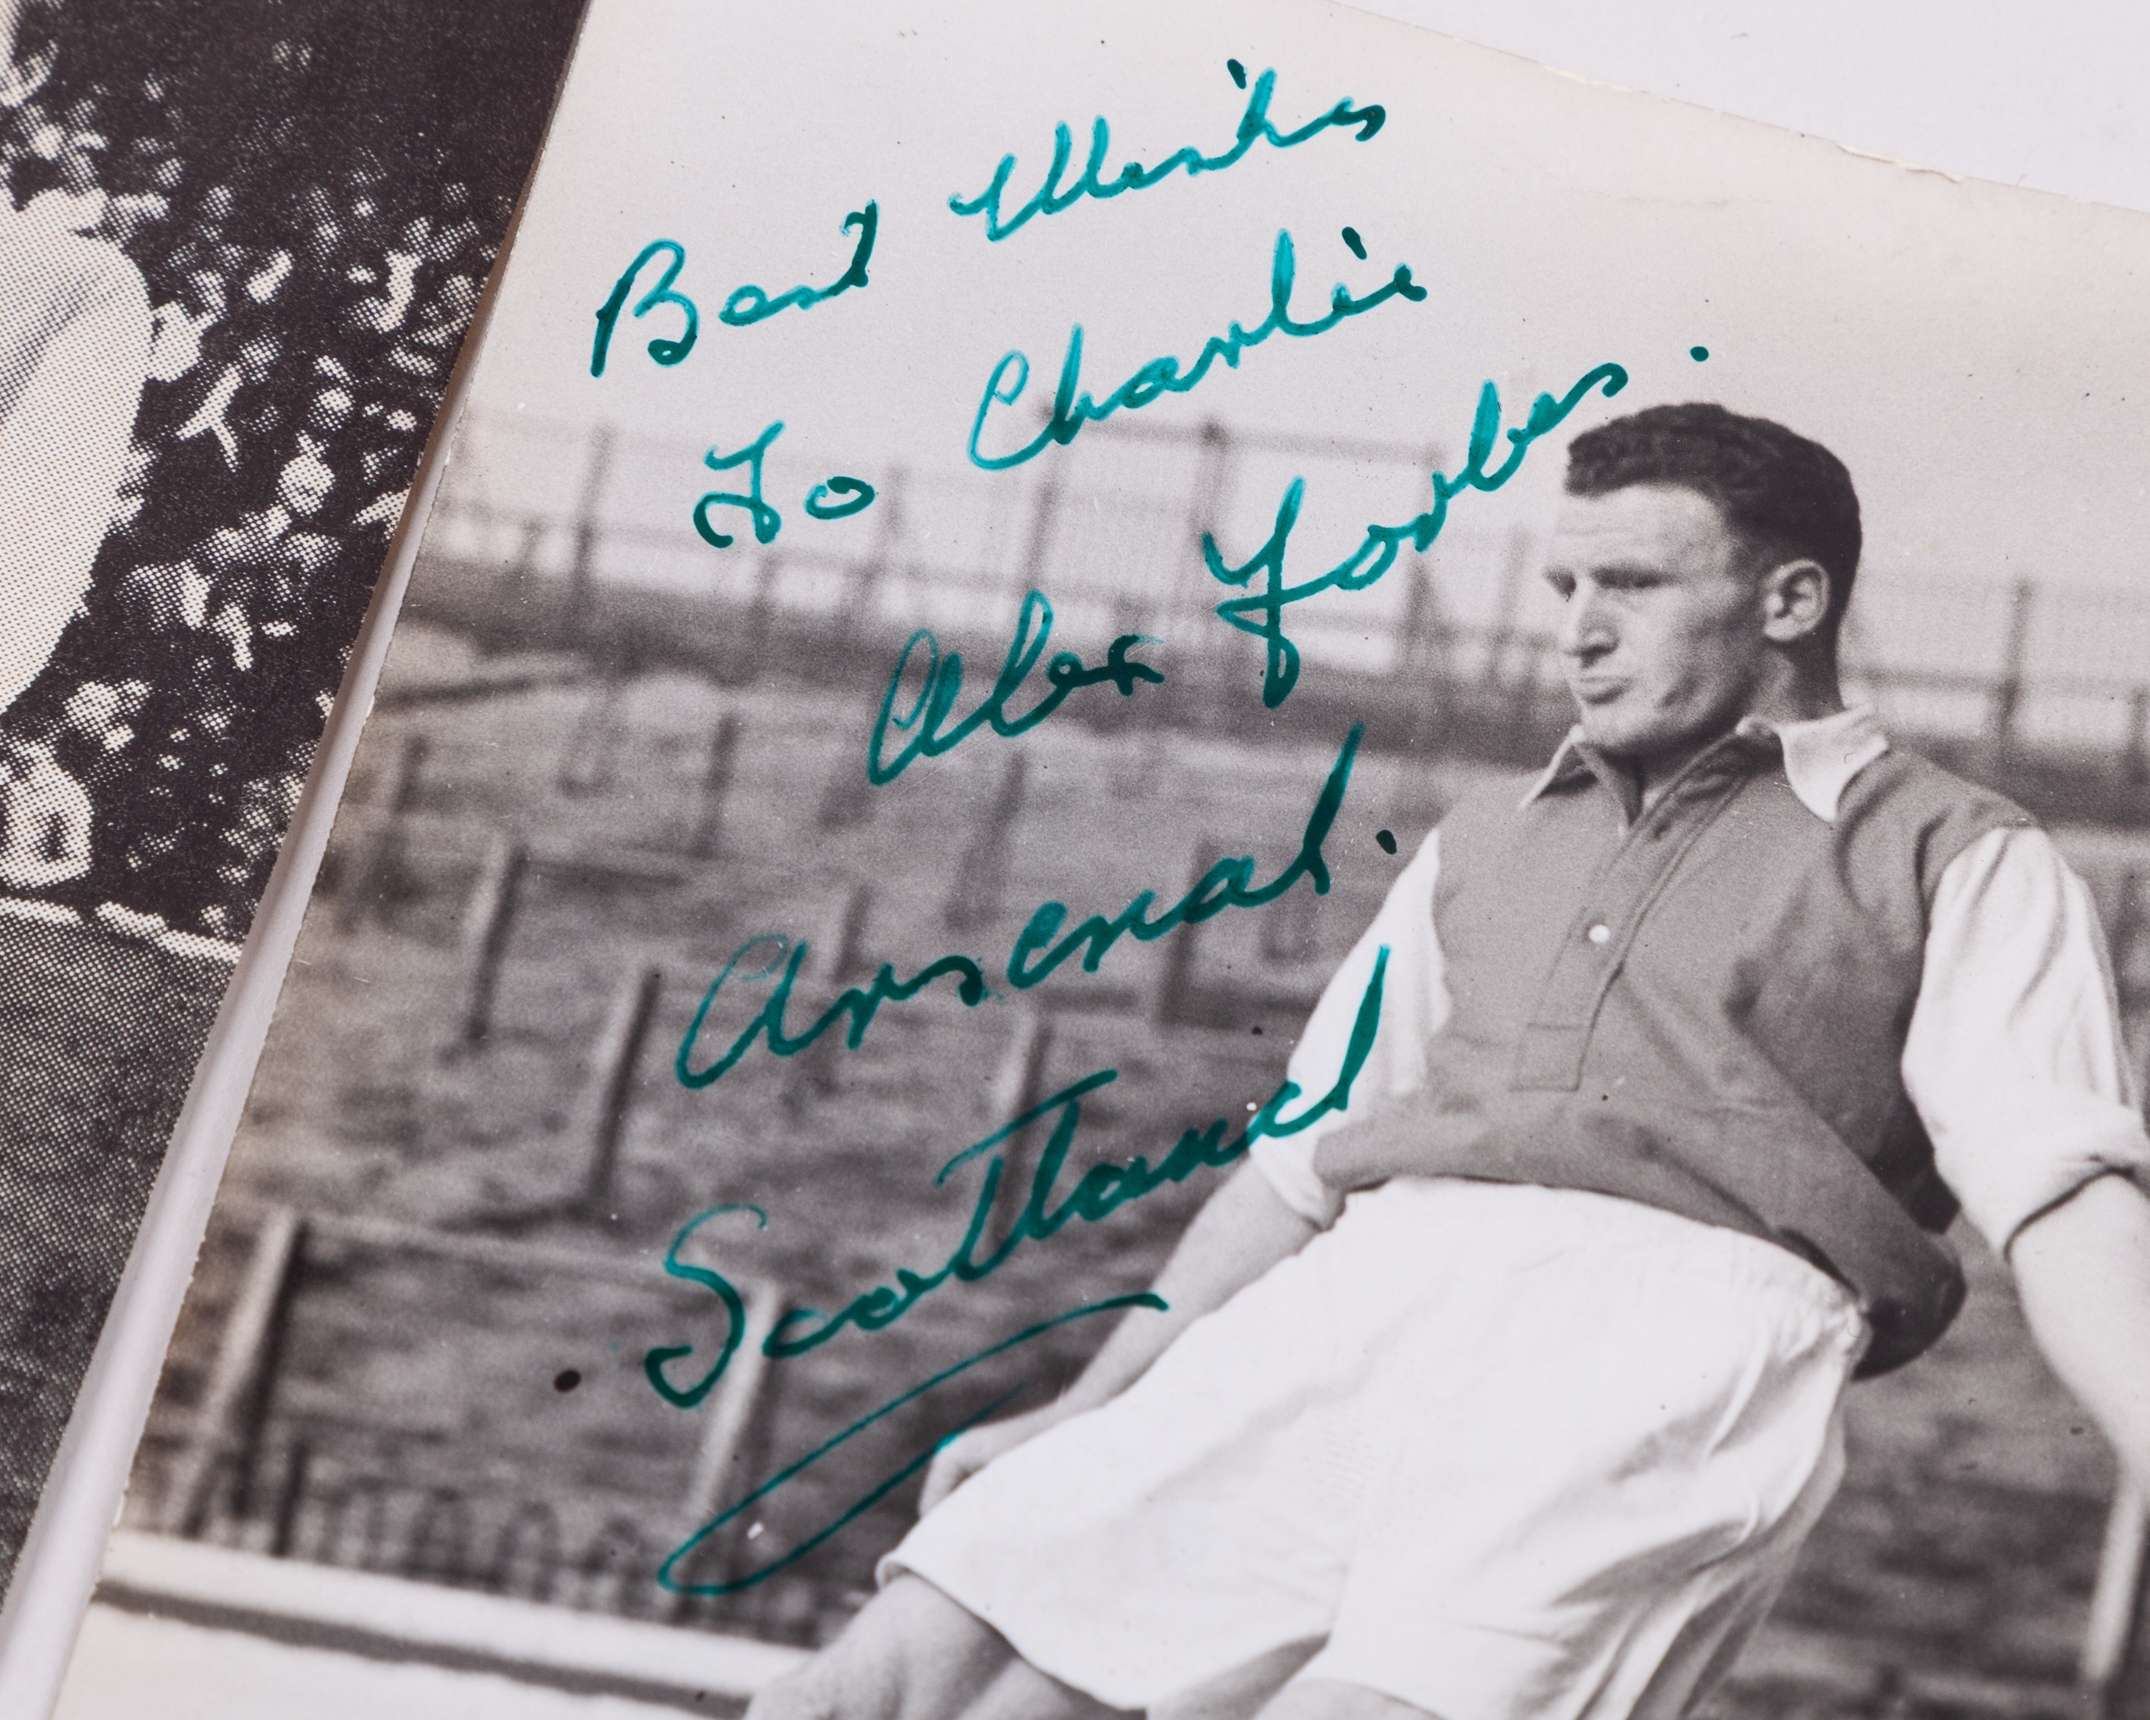 Best Wishes
To Charlie
Alex Forbes.
Arsenal.
Scotland